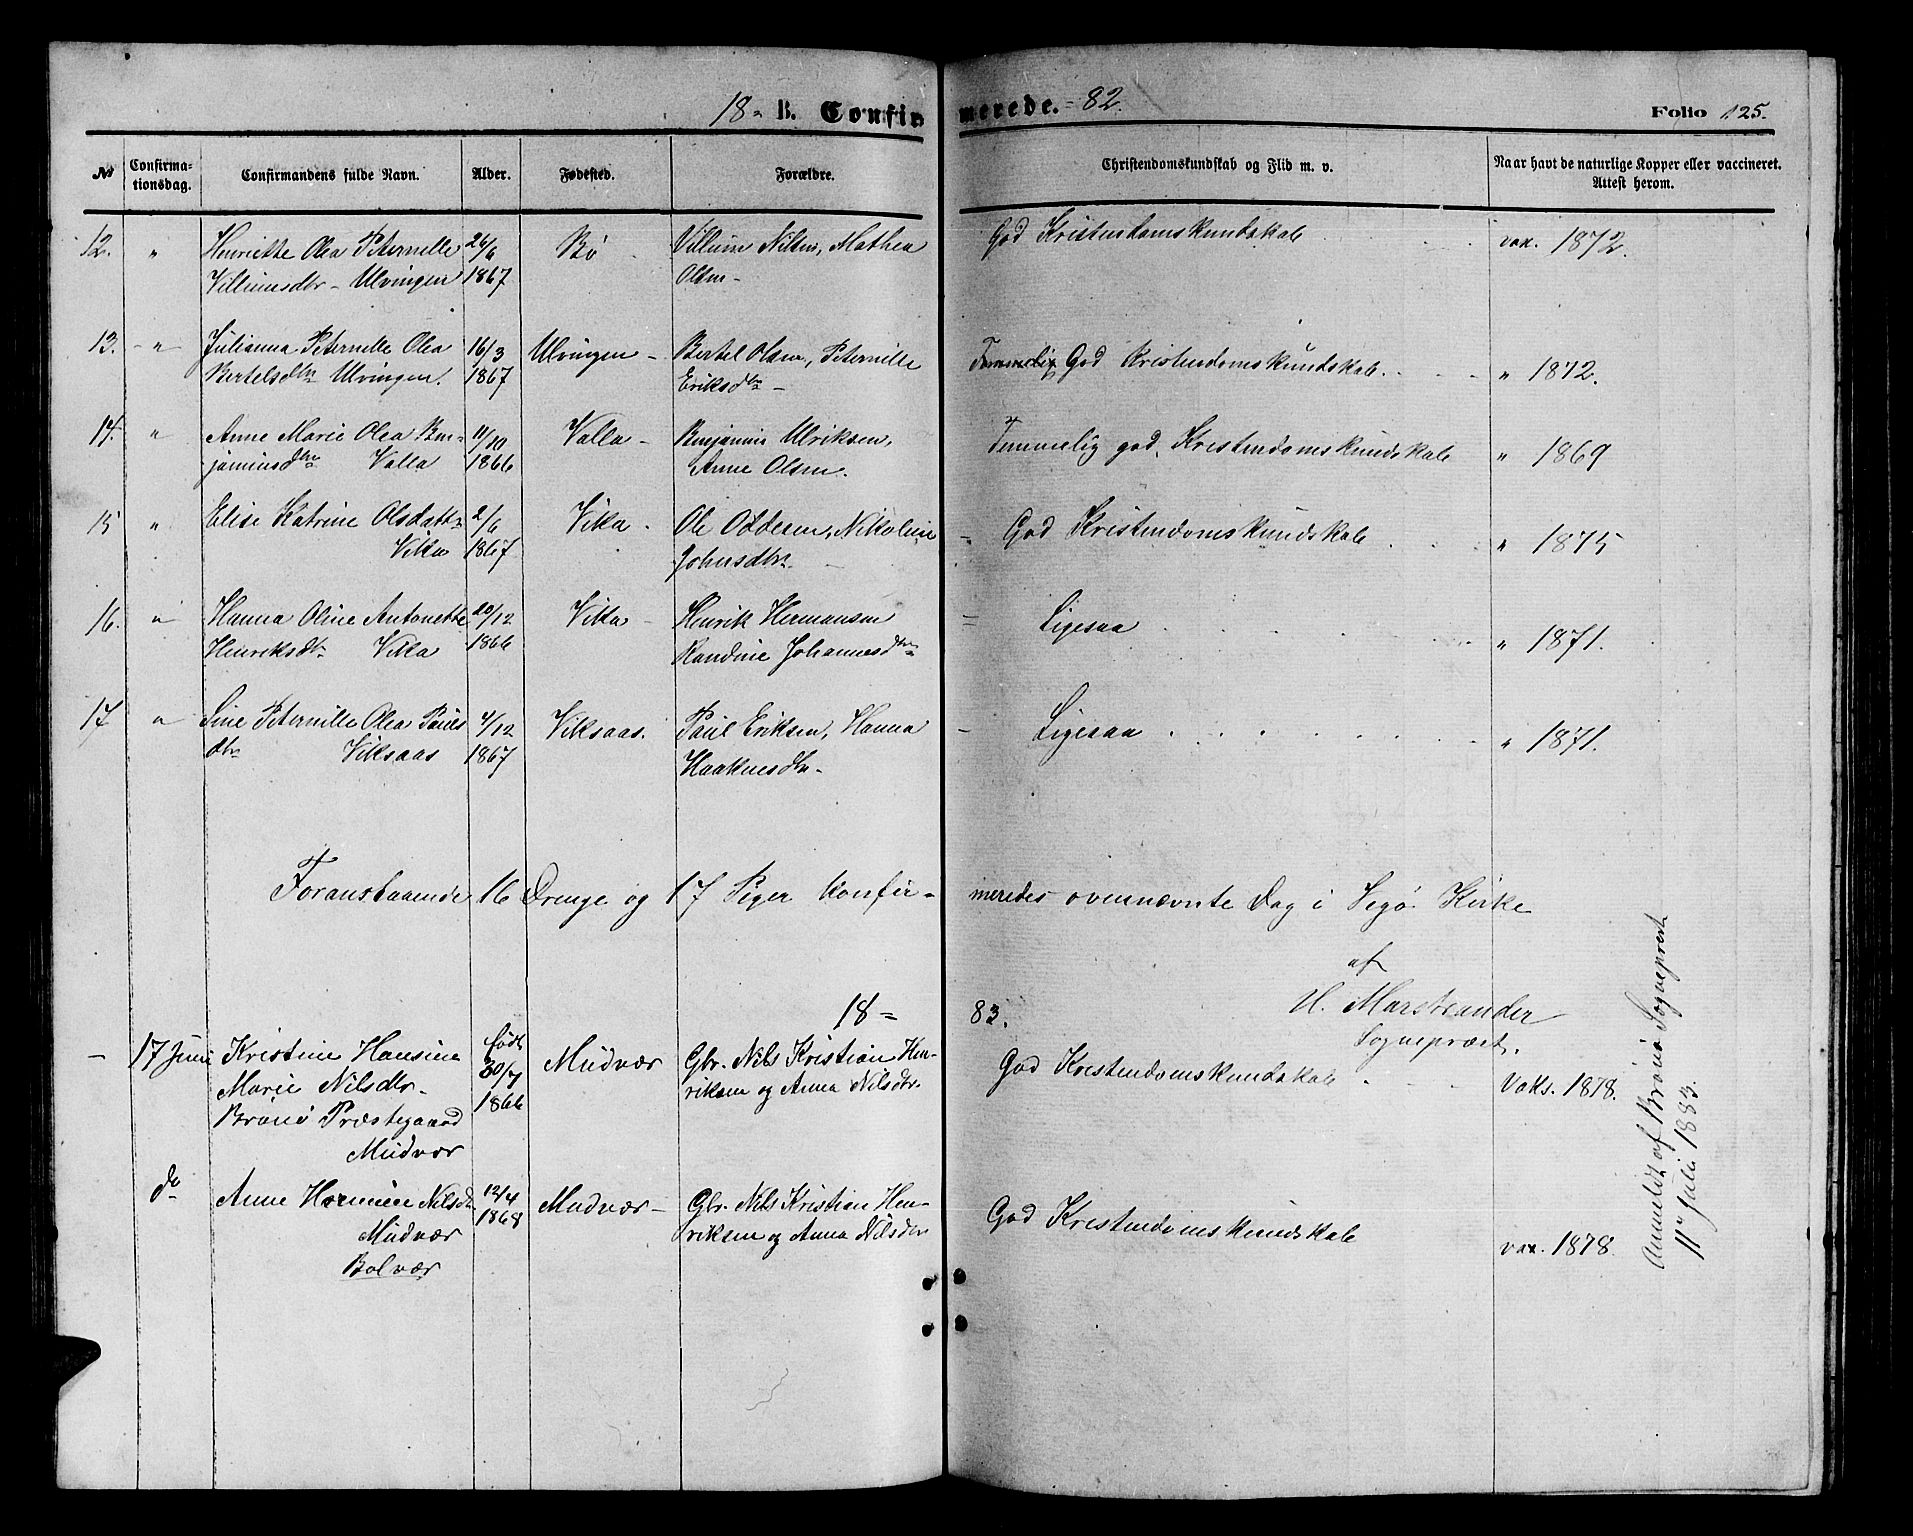 18 = B. Confirmerede. = 82.
Folio 125.
No
Confirma-
tionsdag.
Confirmandens fulde Navn.
Alder.
Fødested.
Forældre.
Christendomskundskab og Flid m. v.
Naar havt de naturlige Kopper eller vaccineret.
Attest herom.
12. " Henriette Olea Peternille 26/6 Bø Villum Nilsen, Mathea God Kristendomskundskab vax. 1872.
Villumsdtr - Ulvingen 1867 Olsen -
13. - " Julianna Peternille Olea 16/3 Ulvingen - Bertel Olsen, Peternille Temmelig God Kristendomskundskab. " 1872.
Bertelsdtr Ulvingen. 1867 Eriksdtr -
14. " Anne Marie Olea Ben- 11/10 Valla - Benjamin Ulriksen, Temmelig god Kristendomskundskab " 1869
jaminsdtr Valla 1866 Anne Olsen.
15 " Elise Katrine Olsdattr 2/6 Vika - Ole Oddesen, Nikoline - God Kristendomskundskab " 1875
Vika 1867 Johnsdtr.
16. " Hanna Oline Antonette 20/12 Vika - Henrik Hermansen = Ligesaa " 1871.
Henriksdtr Vika 1866 Randine Johannesdtr
17 " Sine Peternille Olea Pauls 4/12 Viksaas. Paul Eriksen, Hanna - Ligesaa " 1871.
dtr Viksaas 1867 Haaknesdtr -
Foranstaaende 16 Drenge og 17 Piger konfir- meredes ovennævnte Dag i Vegø Kirke
af
H. Marstrander
Sognepræst.
18 = 83.
- 17 Juni Kristine Hansine født Mudvær Gbr. Nils Kristian Hen- God Kristendomskundskab Vaks. 1878.
Marie Nilsdtr - 30/7 riksen og Anna Nilsdtr.
Brønø Præstegaard 1866
Mudvær
do Anne Hermine Nilsdtr 12/4 Mudvær - Gbr. Nils Kristian Hen- God Kristendomskundskab vax. 1878.
Mudvær 1868 riksen og Anna Nilsdtr
Bolvær
Anmeldt af Brønø Sogneprest
11te Juli 1883.